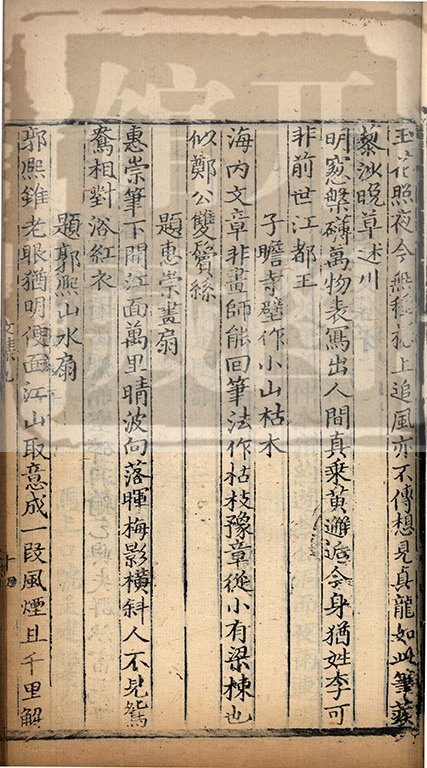 玉花照夜今無種櫪上追風亦不傳想見真龍如此筆蒺
藜沙晚草迷川
明窓槃礴萬物表寫出人間真乘黃邂逅今身猶姓李可
非前世江都王
子瞻寺壁作小山枯木
海内文章非畫師能回筆法作枯枝豫章從小有梁棟也
似鄭公雙鬢絲
題惠崇畫扇
惠崇筆下開江面萬里晴波向落暉梅影橫斜人不見鴛
鴦相對浴紅衣
題郭熙山水扇
郭熙雖老眼猶明便面江山取意成一段風煙且千里解